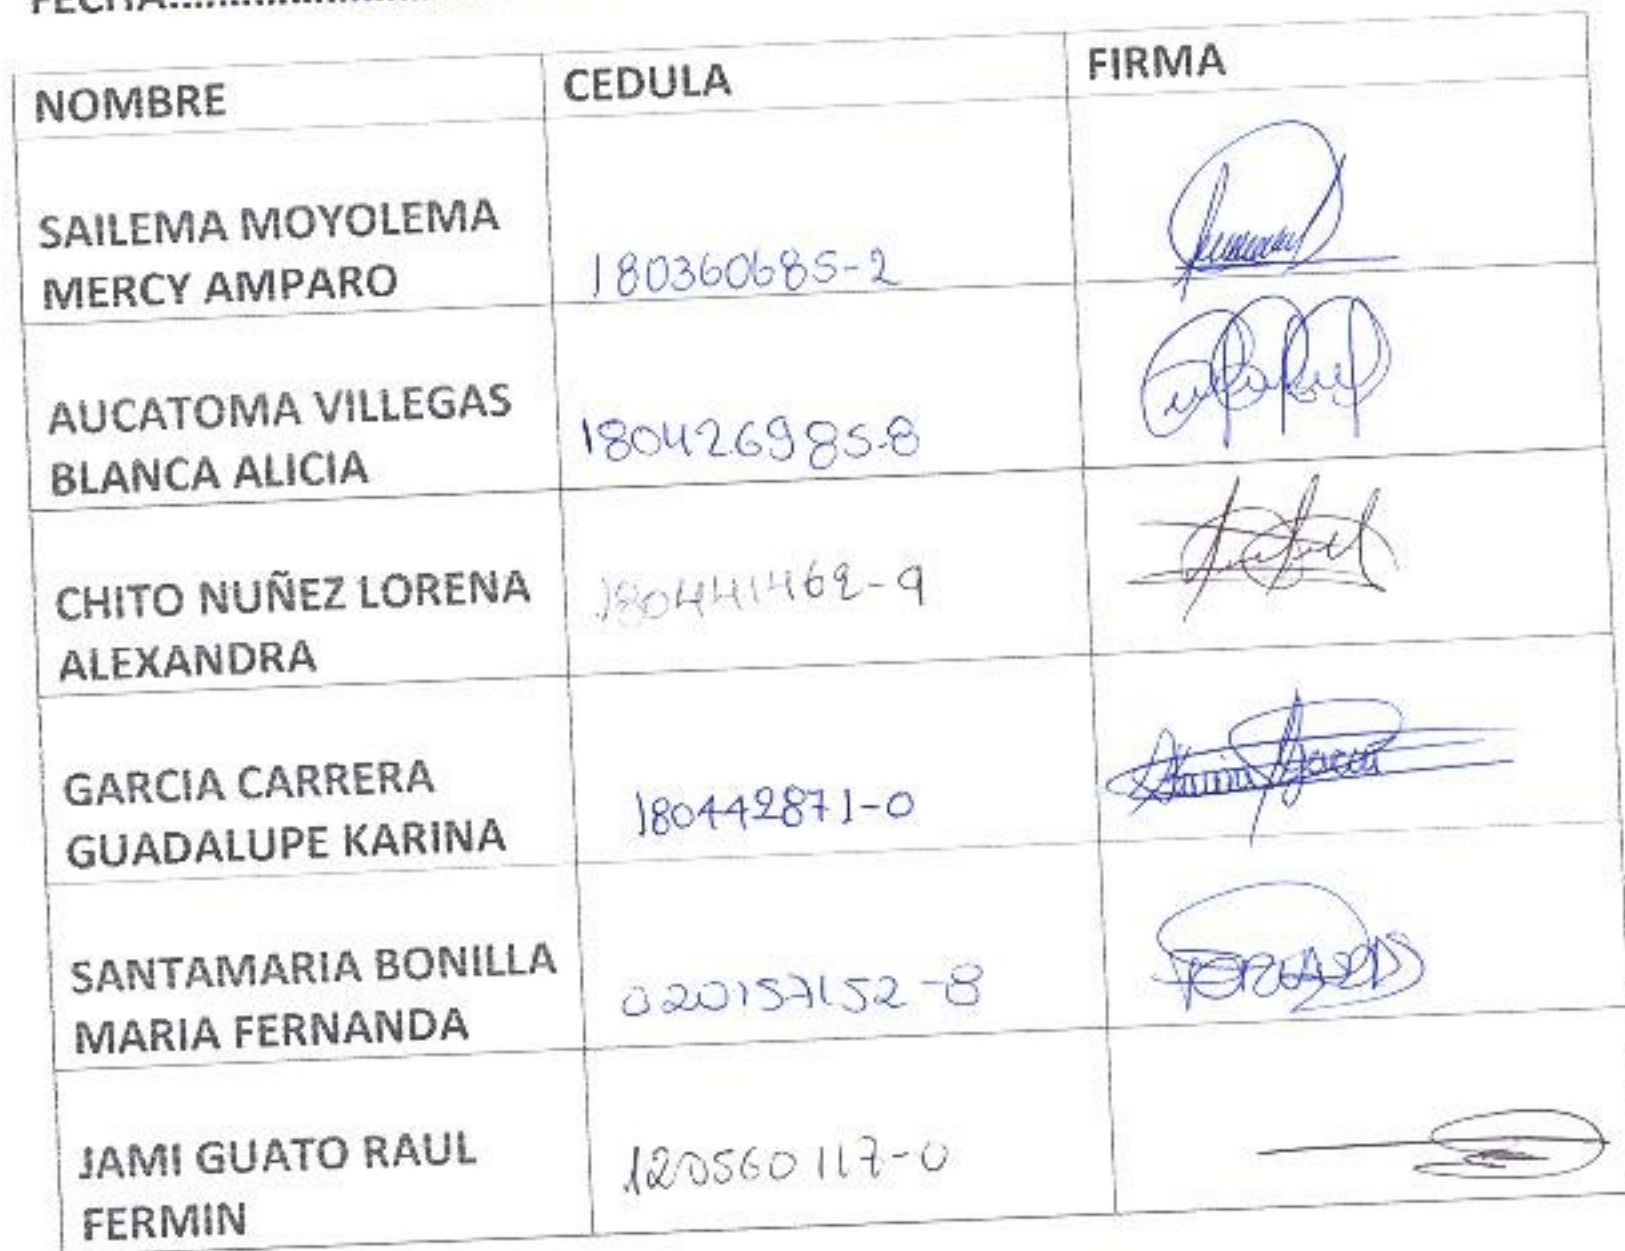 FECHA........................
NOMBRE CEDULA FIRMA
SAILEMA MOYOLEMA
MERCY AMPARO 180360685-2
AUCATOMA VILLEGAS
BLANCA ALICIA 180426985-8
CHITO NUÑEZ LORENA
ALEXANDRA 180441462-9
GARCIA CARRERA
GUADALUPE KARINA 180442871-0
SANTAMARIA BONILLA
MARIA FERNANDA 020157152-8
JAMI GUATO RAUL
FERMIN 120560117-0